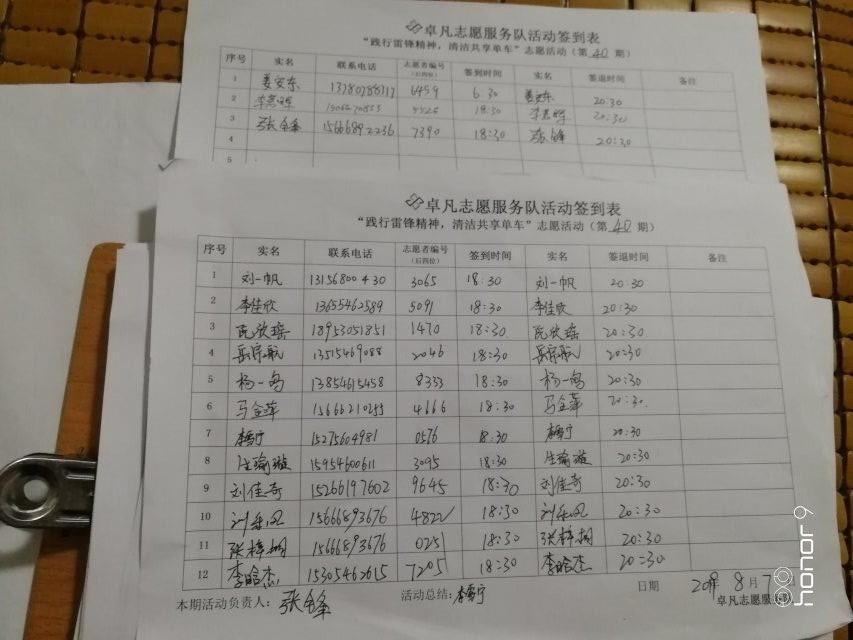 卓凡志愿服务队活动签到表
“践行雷锋精神，清洁共享单车”志愿活动（第 40 期）
序号 实名 联系电话 志愿者编号（后四位） 签到时间 实名 签退时间 备注
1 姜安东 6459 6 30 姜安东 20:30
2 18:30 20:30
3 张金锋 15666892236 7390 18:30 20:30
4
5
卓凡志愿服务队活动签到表
“践行雷锋精神，清洁共享单车”志愿活动（第 40 期）
序号 实名 联系电话 志愿者编号（后四位） 签到时间 实名 签退时间 备注
1 刘一帆 13156800430 3065 18:30 刘一帆 20:30
2 李佳欣 13655462589 5091 18:30 李佳欣 20:30
3 阮欣瑶 18953051851 1470 18:30 阮欣瑶 20:30
4 岳宗航 13515469088 2046 18:30 岳宗航 20:30
5 杨一鸣 13854615458 8333 18:30 杨一鸣 20:30
6 马金萍 15666210255 4666 18:30 马金萍 20:30
7 15275604981 0576 18:30 20:30
8 生瑜璇 15954600611 3095 18:30 生瑜璇 20:30
9 刘佳奇 15266197602 9645 18:30 刘佳奇 20:30
10 15666893676 4822 18:30 20:30
11 张梓桐 15666893676 0251 18:30 张梓桐 20:30
12 李晗杰 15305462615 7205 18:30 李晗杰 20:30
本期活动负责人： 活动总结： 日期 2019 8 月 7
卓凡志愿服务队
honor 9